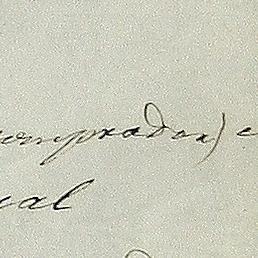 comprador) e
ual